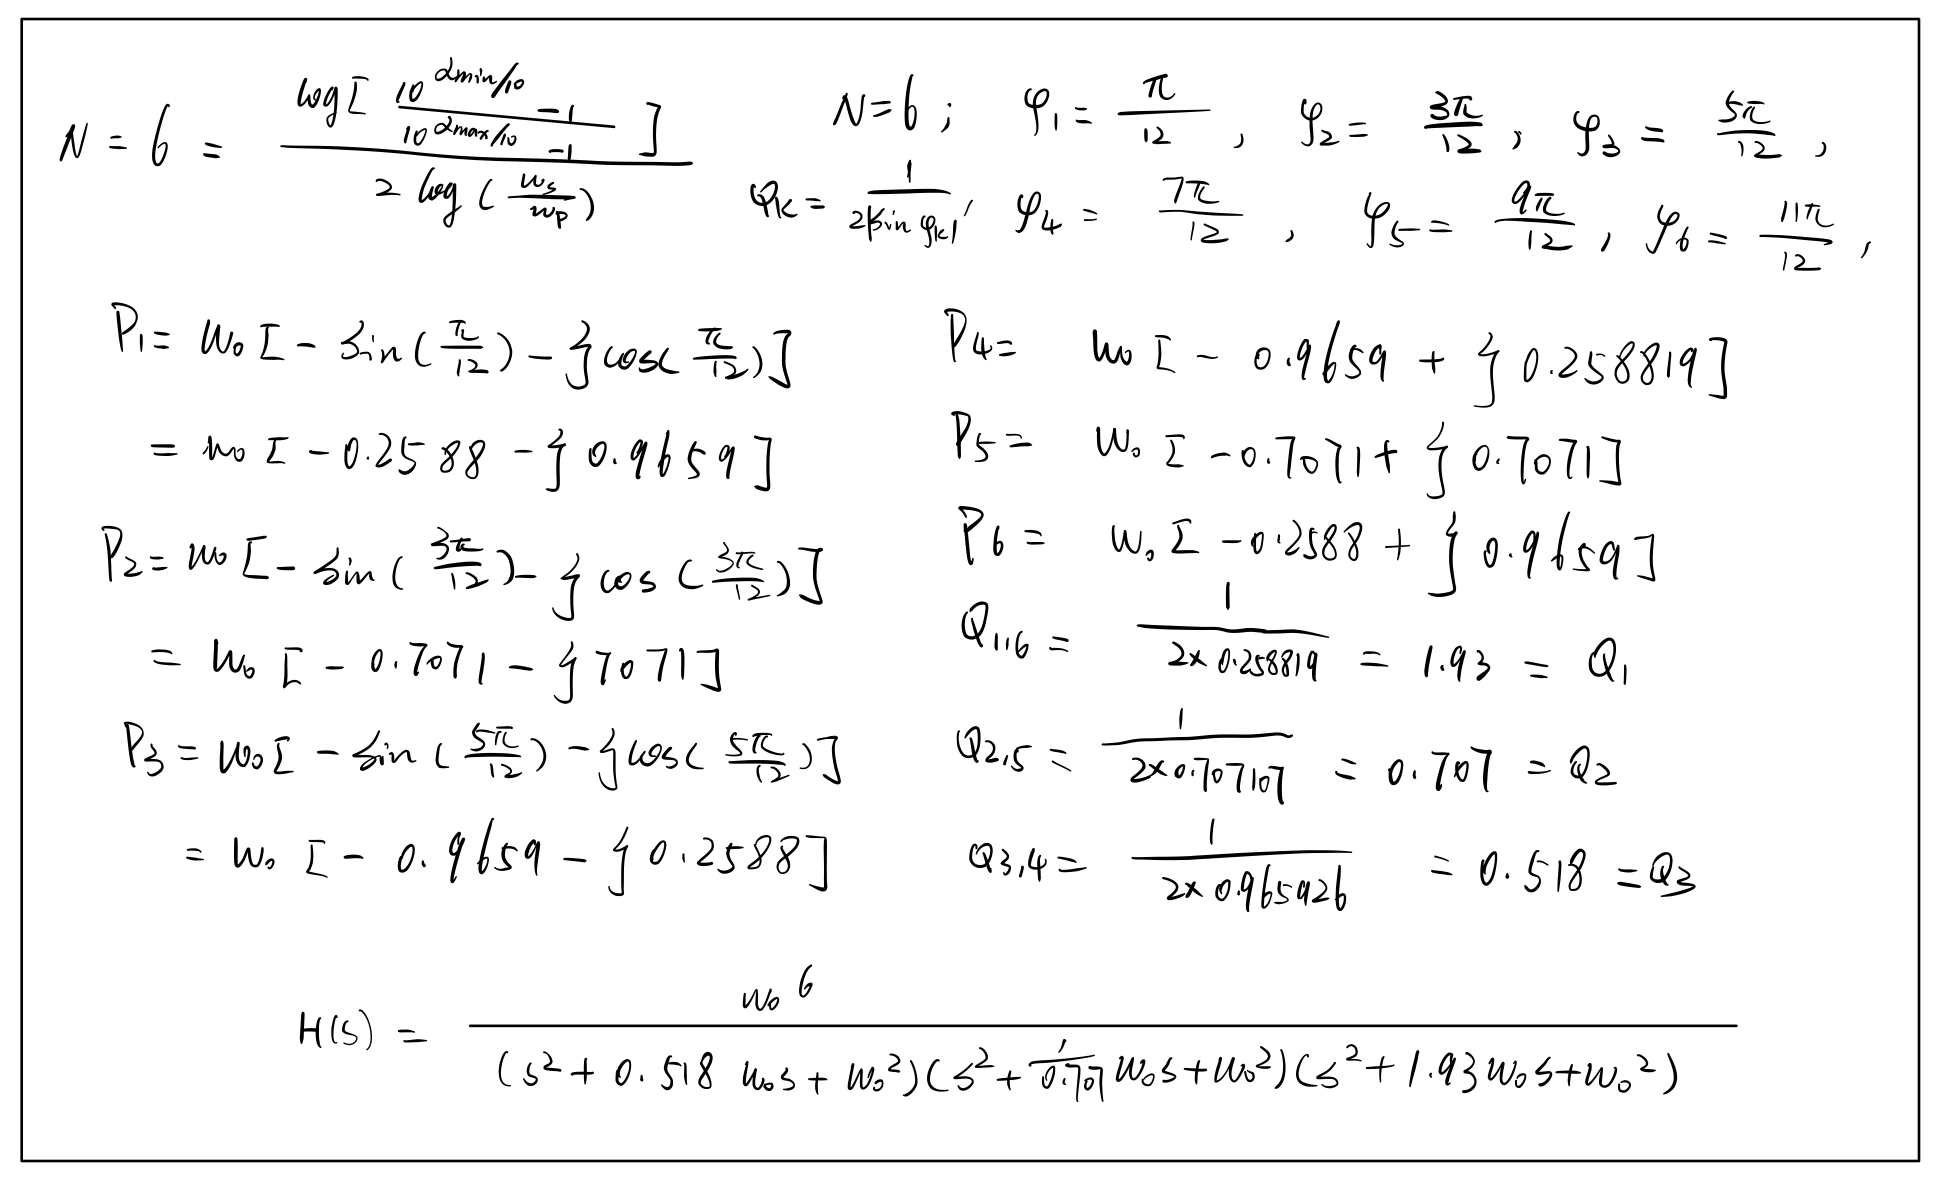 N = 6 = log[ (10^(αmin/10) - 1)/(10^(αmax/10) - 1) ] / 2 log(ws/wp)
N=6; φ1 = π/12, φ2 = 3π/12, φ3 = 5π/12,
φk = 1/(2|sin φk|), φ4 = 7π/12, φ5 = 9π/12, φ6 = 11π/12,
P1 = w0 [ - sin(π/12) - j cos(π/12) ]
= w0 [ - 0.2588 - j 0.9659 ]
P2 = w0 [ - sin(3π/12) - j cos(3π/12) ]
= w0 [ - 0.7071 - j 7071 ]
P3 = w0 [ - sin(5π/12) - j cos(5π/12) ]
= w0 [ - 0.9659 - j 0.2588 ]
P4 = w0 [ - 0.9659 + j 0.258819 ]
P5 = w0 [ - 0.7071 + j 0.7071 ]
P6 = w0 [ - 0.2588 + j 0.9659 ]
Q1,6 = 1/(2×0.258819) = 1.93 = Q1
Q2,5 = 1/(2×0.707107) = 0.707 = Q2
Q3,4 = 1/(2×0.965926) = 0.518 = Q3
H(s) = w0^6 / (s² + 0.518 w0s + w0²)(s² + 1/0.707 w0s + w0²)(s² + 1.93w0s + w0²)